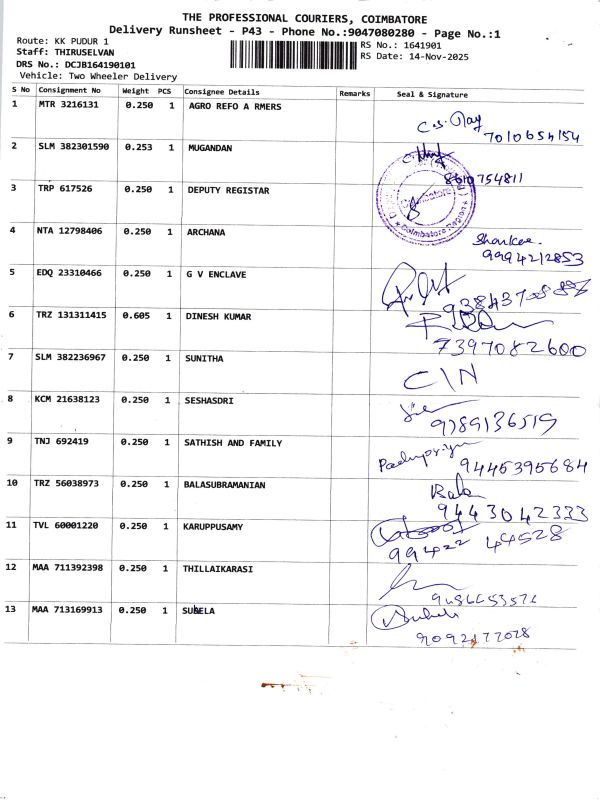 THE PROFESSIONAL COURIERS, COIMBATORE
Delivery Runsheet - P43 - Phone No.:9047080280 - Page No.:1
Route: KK PUDUR 1
Staff: THIRUSELVAN
DRS No.: DCJB164190101
Vehicle: Two Wheeler Delivery
RS No.: 1641901
RS Date: 14-Nov-2025
S No Consignment No Weight PCS Consignee Details Remarks Seal & Signature
1 MTR 3216131 0.250 1 AGRO REFO A RMERS
7010654154
2 SLM 382301590 0.253 1 MUGANDAN
8610754811
3 TRP 617526 0.250 1 DEPUTY REGISTAR
Coimbatore
Coimbatore Region
4 NTA 12798406 0.250 1 ARCHANA
9994212853
5 EDQ 23310466 0.250 1 G V ENCLAVE
6 TRZ 131311415 0.605 1 DINESH KUMAR
7397082600
7 SLM 382236967 0.250 1 SUNITHA
C/N
8 KCM 21638123 0.250 1 SESHASDRI
9789136519
9 TNJ 692419 0.250 1 SATHISH AND FAMILY
9445395684
10 TRZ 56038973 0.250 1 BALASUBRAMANIAN
9443042333
11 TVL 60001220 0.250 1 KARUPPUSAMY
99422 44528
12 MAA 711392398 0.250 1 THILLAIKARASI
13 MAA 713169913 0.250 1 SUBELA
9092177028